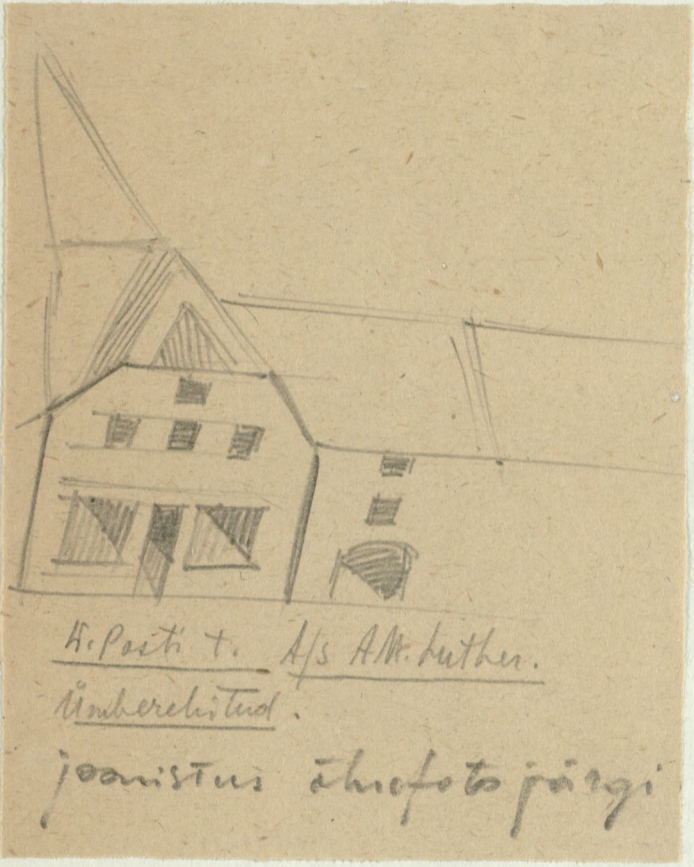 V. Posti t. A/s A.M. Luther.
Ümberehitud.
joonistus õhefoto järgi